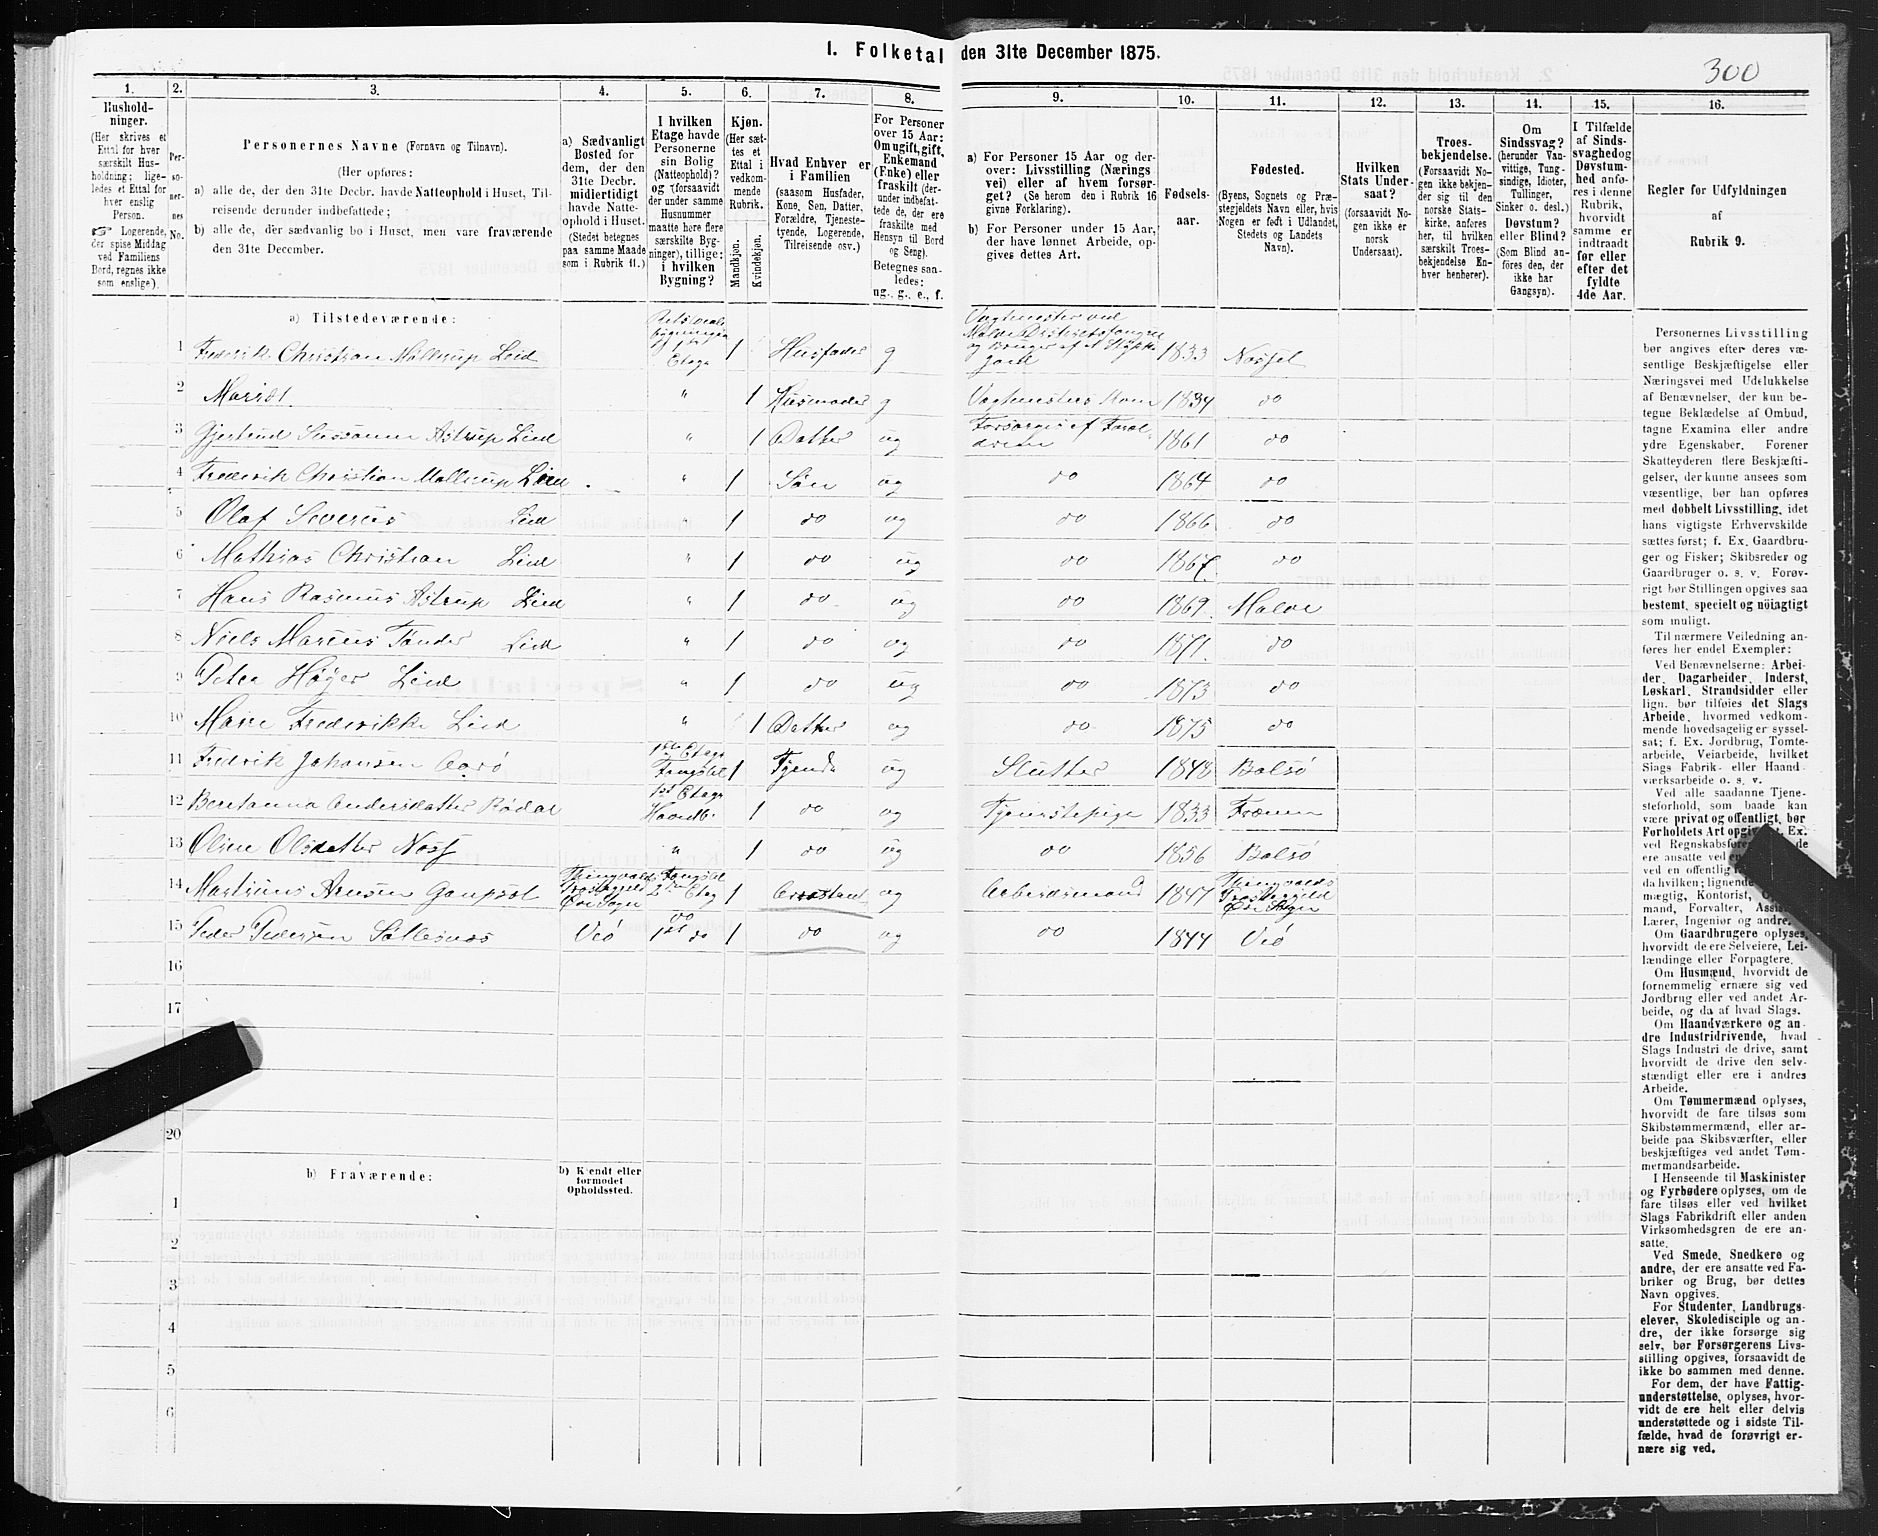 I. Folketal den 31te December 1875.
300
1. 2. 3. 4. 5. 6. 7. 8. 9. 10. 11. 12. 13. 14. 15. 16.
Hushold-
ninger.
(Her skrives et
Ettal for hver
særskilt Hus-
holdning; lige-
ledes et Ettal for
hver enslig
Person.
☞ Logerende,
der spise Middag
ved Familiens
Bord, regnes ikke
som enslige).
Per-
so-
ner-
nes
No.
Personernes Navne (Fornavn og Tilnavn).
(Her opføres:
a) alle de, der den 31te Decbr. havde Natteophold i Huset, Til-
reisende derunder indbefattede;
b) alle de, der sædvanlig bo i Huset, men vare fraværende
den 31te December.
a) Sædvanligt
Bosted for
dem, der den
31te Decbr.
midlertidigt
havde Natte-
ophold i Huset.
(Stedet betegnes
paa samme Maade
som i Rubrik 11.)
I hvilken
Etage havde
Personerne
sin Bolig
(Natteophold)?
og (forsaavidt
der under samme
Husnummer
maatte høre flere
særskilte Byg-
ninger), tillige:
i hvilken
Bygning?
Kjøn.
(Her sæt-
tes et
Ettal i
vedkom-
mende
Rubrik.
Mandkjøn.
Kvindekjøn.
Hvad Enhver er
i Familien
(saasom Husfader,
Kone, Søn, Datter,
Forældre, Tjeneste-
tyende, Logerende,
Tilreisende osv.)
For Personer
over 15 Aar:
Om ugift, gift,
Enkemand
(Enke) eller
fraskilt (der-
under indbefat-
tede de, der ere
fraskilte med
Hensyn til Bord
og Seng).
Betegnes saa-
ledes:
ug., g., e., f.
a) For Personer 15 Aar og der-
over: Livsstilling (Nærings
vei) eller af hvem forsør-
get? (Se herom den i Rubrik 16
givne Forklaring).
b) For Personer under 15 Aar,
der have lønnet Arbeide, op-
gives dettes Art.
Fødsels-
aar.
Fødested.
(Byens, Sognets og Præ-
stegjeldets Navn eller, hvis
Nogen er født i Udlandet,
Stedets og Landets
Navn).
Hvilken
Stats Under-
saat?
(forsaavidt No-
gen ikke er
norsk
Undersaat).
Troes-
bekjendelse.
(Forsaavidt No-
gen ikke bekjen-
der sig til den
norske Stats-
kirke, anføres
her, til hvilken
særskilt Troes-
bekjendelse En-
hver henhører).
Om
Sindssvag?
(herunder Van-
vittige, Tung-
sindige, Idioter,
Tullinger,
Sinker o. desl.)
Døvstum?
eller Blind?
(Som Blind an-
føres den, der
ikke har
Gangsyn).
I Tilfælde
af Sinds-
svaghed og
Døvstum-
hed anfø-
res i denne
Rubrik,
hvorvidt
samme er
indtraadt
før eller
efter det
fyldte
4de Aar.
Regler for Udfyldningen
af
Rubrik 9.
a) Tilstedeværende:
1 Frederik Christian Møllerup Lind Etage 1 Husfader g Vagtmester ved Molde Distriktsfængsel 1833 Nossset
2 " 1 Husmoder g Vagtmesters Kone 1834 do
3 Gjertrud Sussanna Astrup Lind " 1 Datter ug Forsørges af Foræl-
drene 1861 do
4 Frederik Christian Møllerup Lind " 1 Søn ug do 1864 do
5 Olaf Severus Lind " 1 do ug do 1866 do
6 Mathias Christian Lind " 1 do ug do 1867 do
7 Hans Rasmus Astrup Lind " 1 do ug do 1869 Molde
8 Niels Marcus Tønder Lind " 1 do ug do 1871 do
9 Peter Høyer Lind " 1 do ug do 1873 do
10 Marie Frederikke Lind " 1 Datter ug do 1875 do
11 Fredrik Johansen Aarø 1ste Etage 1 Tyende ug Slutter 1848 Bolsø
12 Beretanna Andersdatter Rødal 1st Etage Hovedb. 1 do ug Tjenestepige 1833 Frænen
13 Oline Olsdatter " 1 do ug do 1856 Bolsø
14 Martinus Arnesen Gaupset Thingvolds Præstegjeld Øre Sogn Fængslet 2den Etag 1 Arrestant ug Arbeidsmand 1847 Thingvolds Præstegjeld Øre Sogn
15 Peder Pedersen Veø 1st do 1 do ug do 1844 Veø
16
17
20
b) Fraværende:
b) Kjendt eller
formodet
Opholdssted.
1
2
3
4
5
6
Personernes Livsstilling
bør angives efter deres væ-
sentlige Beskjæftigelse eller
Næringsvei med Udelukkelse
af Benævnelser, der kun be-
tegne Beklædelse af Ombud,
tagne Examina eller andre
ydre Egenskaber. Forener
Skatteyderen flere Beskjæfti-
gelser, der kunne ansees som
væsentlige, bør han opføres
med dobbelt Livsstilling, idet
hans vigtigste Erhvervskilde
sættes først; f. Ex. Gaardbru-
ger og Fisker; Skibsreder og
Gaardbruger o. s. v. Forøv-
rigt bør Stillingen opgives saa
bestemt, specielt og nöiagtigt
som muligt.
Til nærmere Veiledning an-
føres her endel Exempler:
Ved Benævnelserne: Arbei-
der, Dagarbeider, Inderst,
Løskarl, Strandsidder eller
lign. bør tilføies det Slags
Arbeide, hvormed vedkom-
mende hovedsagelig er syssel-
sat; f. Ex. Jordbrug, Tomte-
arbeide, Veiarbeide, hvilket
Slags Fabrik- eller Haand-
værksarbeide o. s. v.
Ved alle saadanne Tjene-
steforhold, som baade kan
være privat og offentligt, bør
Forholdets Art opgives, f. Ex.
ved Regnskabsføre
ere ansatte ved en
ved en offentlig
da hvilken; lignende
mægtig, Kontorist,
mand, Forvalter, Assis
Lærer, Ingeniør og andre.
Om Gaardbrugere oplyses,
hvorvidt de ere Selveiere, Lei-
lændinge eller Forpagtere.
Om Husmænd, hvorvidt de
fornemmelig ernære sig ved
Jordbrug eller ved andet Ar-
beide, og da af hvad Slags.
Om Haandværkere og an-
dre Industridrivende, hvad
Slags Industri de drive, samt
hvorvidt de drive den selv-
stændigt eller ere i andres
Arbeide.
Om Tømmermænd oplyses,
hvorvidt de fare tilsøs som
Skibstømmermænd, eller ar-
beide paa Skibsværfter, eller
beskjæftiges ved andet Tøm-
mermandsarbeide.
I Henseende til Maskinister
og Fyrbødere oplyses, om de
fare tilsøs eller ved hvilket
Slags Fabrikdrift eller anden
Virksomhedsgren de ere an-
satte.
Ved Smede, Snedkere og
andre, der ere ansatte ved Fa-
briker og Brug, bør dettes
Navn opgives.
For Studenter, Landbrugs-
elever, Skoledisciple og an-
dre, der ikke forsørge sig
selv, bør Forsørgerens Livs-
stilling opgives, forsaavidt de
ikke bo sammen med denne.
For dem, der have Fattig-
understøttelse, oplyses, hvor-
vidt de ere helt eller delvis
understøttede og i sidste Til-
fælde, hvad de forøvrigt er-
nære sig ved.